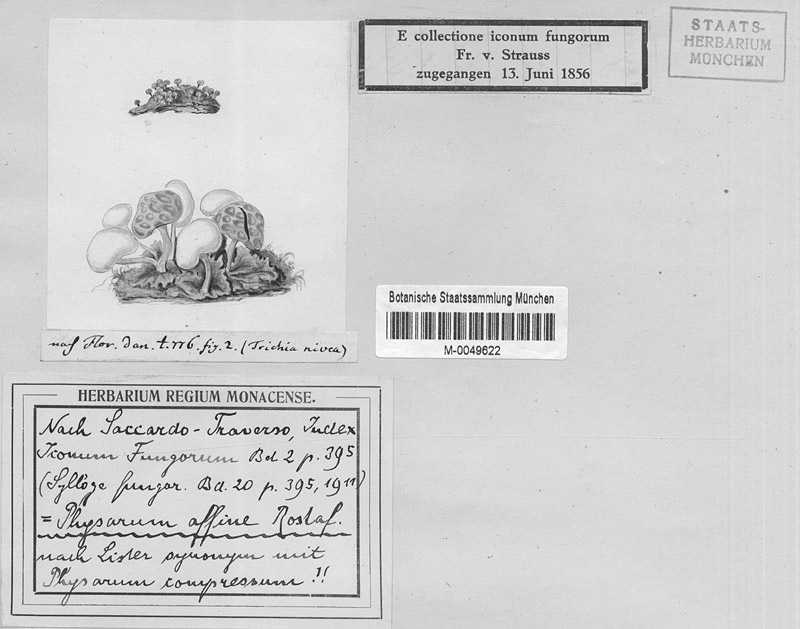 E collectione iconum fungorum
Fr. v. Strauss
zugegangen 13. Juni 1856
STAATS-
HERBARIUM
MÜNCHEN
Botanische Staatssammlung München
M-0049622
nach Flor. dan. t. 776. fig. 2. (Trichia nivea)
HERBARIUM REGIUM MONACENSE.
Nach Saccardo-Traverso, Index
Iconum Fungorum Bd 2 p. 395
(Sylloge fungor. Bd. 20 p. 395, 1911)
= Physarum affine Rostaf.
nach Lister synonym mit
Physarum compressum !!